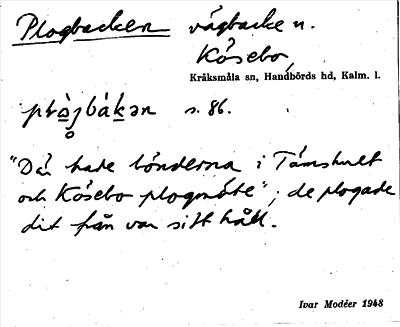 Plogbacken vägbacke n.
Kösebo,
Kråksmåla sn, Handbörds hd, Kalm. l.
s. 86.
"Där hade bönderna i Tämshult
och Kösebo plogmöte"; de plogade
dit från var sitt håll.
Ivar Modéer 1948